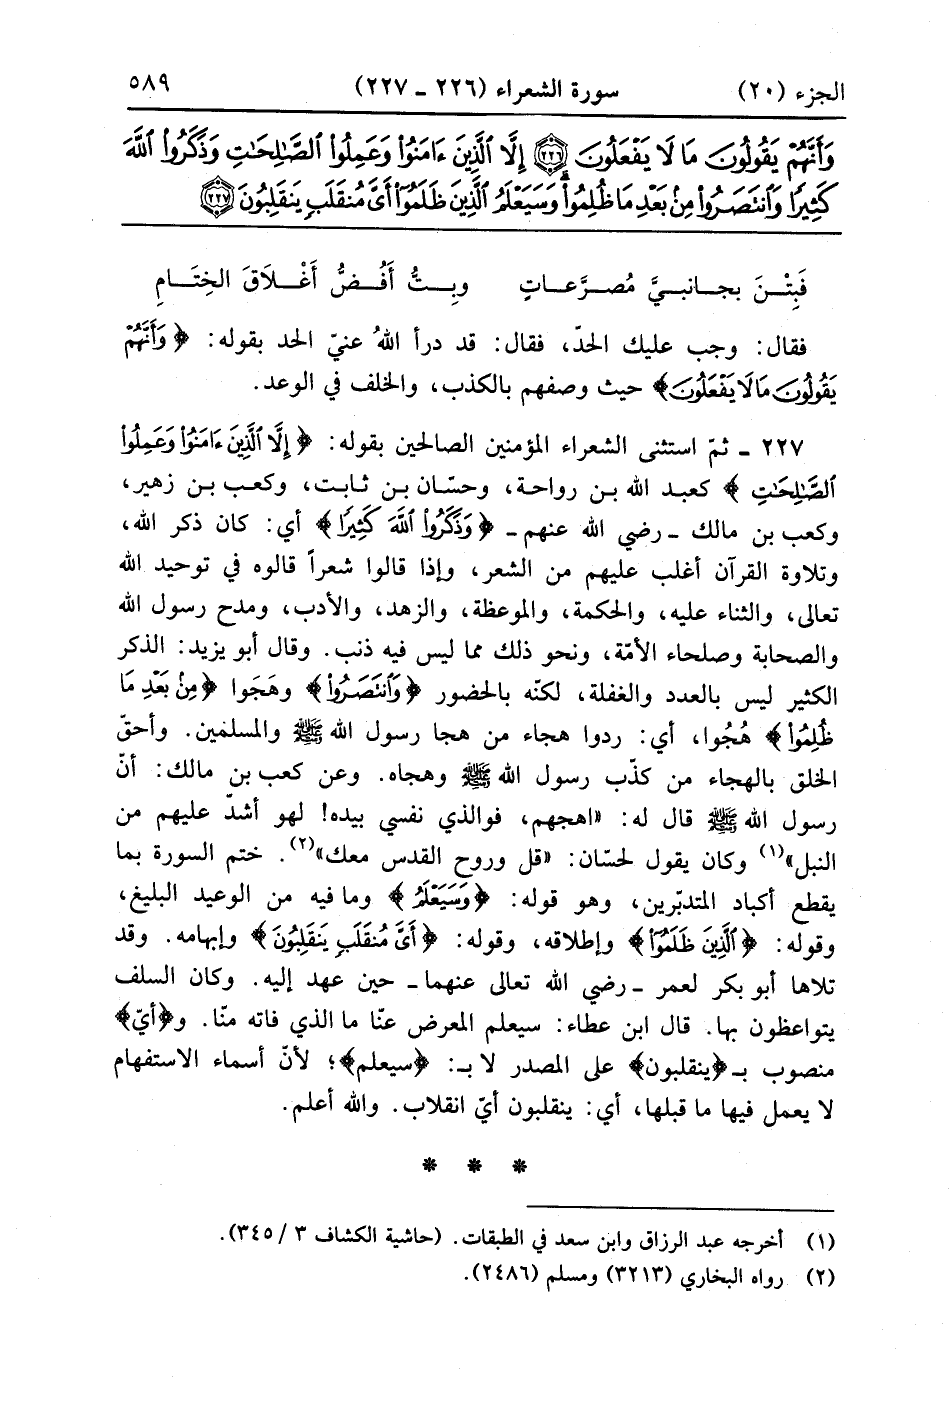 الجزء (٢٠) سورة الشعراء (٢٢٦ ـ ٢٢٧) ٥٨٩
وَأَنَّهُمْ يَقُولُونَ مَا لَا يَفْعَلُونَ ﴿٢٢٦﴾ إِلَّا ٱلَّذِينَ ءَامَنُوا۟ وَعَمِلُوا۟ ٱلصَّـٰلِحَـٰتِ وَذَكَرُوا۟ ٱللَّهَ
كَثِيرًا وَٱنتَصَرُوا۟ مِنۢ بَعْدِ مَا ظُلِمُوا۟ ۗ وَسَيَعْلَمُ ٱلَّذِينَ ظَلَمُوٓا۟ أَىَّ مُنقَلَبٍ يَنقَلِبُونَ ﴿٢٢٧﴾
فَبِتْـنَ بجـانبـيَّ مُصـرَّعـاتٍ وبِـتُّ أَفُـضُّ أَغْـلَاقَ الخِتَـامِ
فقال: وجب عليك الحدّ، فقال: قد درأ اللهُ عنيّ الحد بقوله: ﴿ وَأَنَّهُمْ
يَقُولُونَ مَا لَا يَفْعَلُونَ﴾ حيث وصفهم بالكذب، والخلف في الوعد.
٢٢٧ ـ ثمّ استثنى الشعراء المؤمنين الصالحين بقوله: ﴿ إِلَّا ٱلَّذِينَ ءَامَنُوا۟ وَعَمِلُوا۟
ٱلصَّـٰلِحَـٰتِ ﴾ كعبد الله بن رواحة، وحسّان بن ثابت، وكعب بن زهير،
وكعب بن مالك ـ رضي الله عنهم ـ ﴿ وَذَكَرُوا۟ ٱللَّهَ كَثِيرًا ﴾ أي: كان ذكر الله،
وتلاوة القرآن أغلب عليهم من الشعر، وإذا قالوا شعراً قالوه في توحيد الله
تعالى، والثناء عليه، والحكمة، والموعظة، والزهد، والأدب، ومدح رسول الله
والصحابة وصلحاء الأمّة، ونحو ذلك مما ليس فيه ذنب. وقال أبو يزيد: الذكر
الكثير ليس بالعدد والغفلة، لكنّه بالحضور ﴿ وَٱنتَصَرُوا۟ ﴾ وهَجَوا ﴿مِنۢ بَعْدِ مَا
ظُلِمُوا۟ ﴾ هُجُوا، أي: ردوا هجاء من هجا رسول الله ﷺ والمسلمين. وأحقّ
الخلق بالهجاء من كذّب رسول الله ﷺ وهجاه. وعن كعب بن مالك: أنّ
رسول الله ﷺ قال له: «اهجهم، فوالذي نفسي بيده! لهو أشدّ عليهم من
النبل»(١) وكان يقول لحسّان: «قل وروح القدس معك»(٢). ختم السورة بما
يقطع أكباد المتدبّرين، وهو قوله: ﴿ وَسَيَعْلَمُ ﴾ وما فيه من الوعيد البليغ،
وقوله: ﴿ ٱلَّذِينَ ظَلَمُوٓا۟ ﴾ وإطلاقه، وقوله: ﴿ أَىَّ مُنقَلَبٍ يَنقَلِبُونَ ﴾ وإبهامه. وقد
تلاها أبو بكر لعمر ـ رضي الله تعالى عنهما ـ حين عهد إليه. وكان السلف
يتواعظون بها. قال ابن عطاء: سيعلم المعرض عنّا ما الذي فاته منّا. و﴿أيّ﴾
منصوب بـ ﴿ينقلبون﴾ على المصدر لا بـ: ﴿سيعلم﴾؛ لأنّ أسماء الاستفهام
لا يعمل فيها ما قبلها، أي: ينقلبون أيّ انقلاب. والله أعلم.
* * *
(١) أخرجه عبد الرزاق وابن سعد في الطبقات. (حاشية الكشاف ٣ / ٣٤٥).
(٢) رواه البخاري (٣٢١٣) ومسلم (٢٤٨٦).